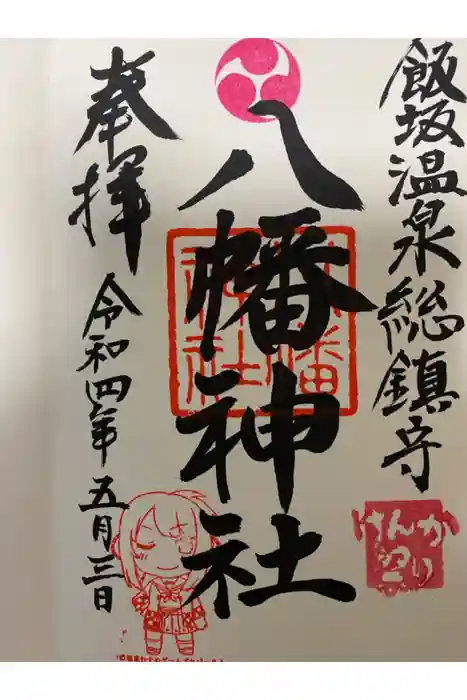 飯坂温泉総鎮守
八幡神社
八幡神社
奉拝
令和四年五月三日
けんか